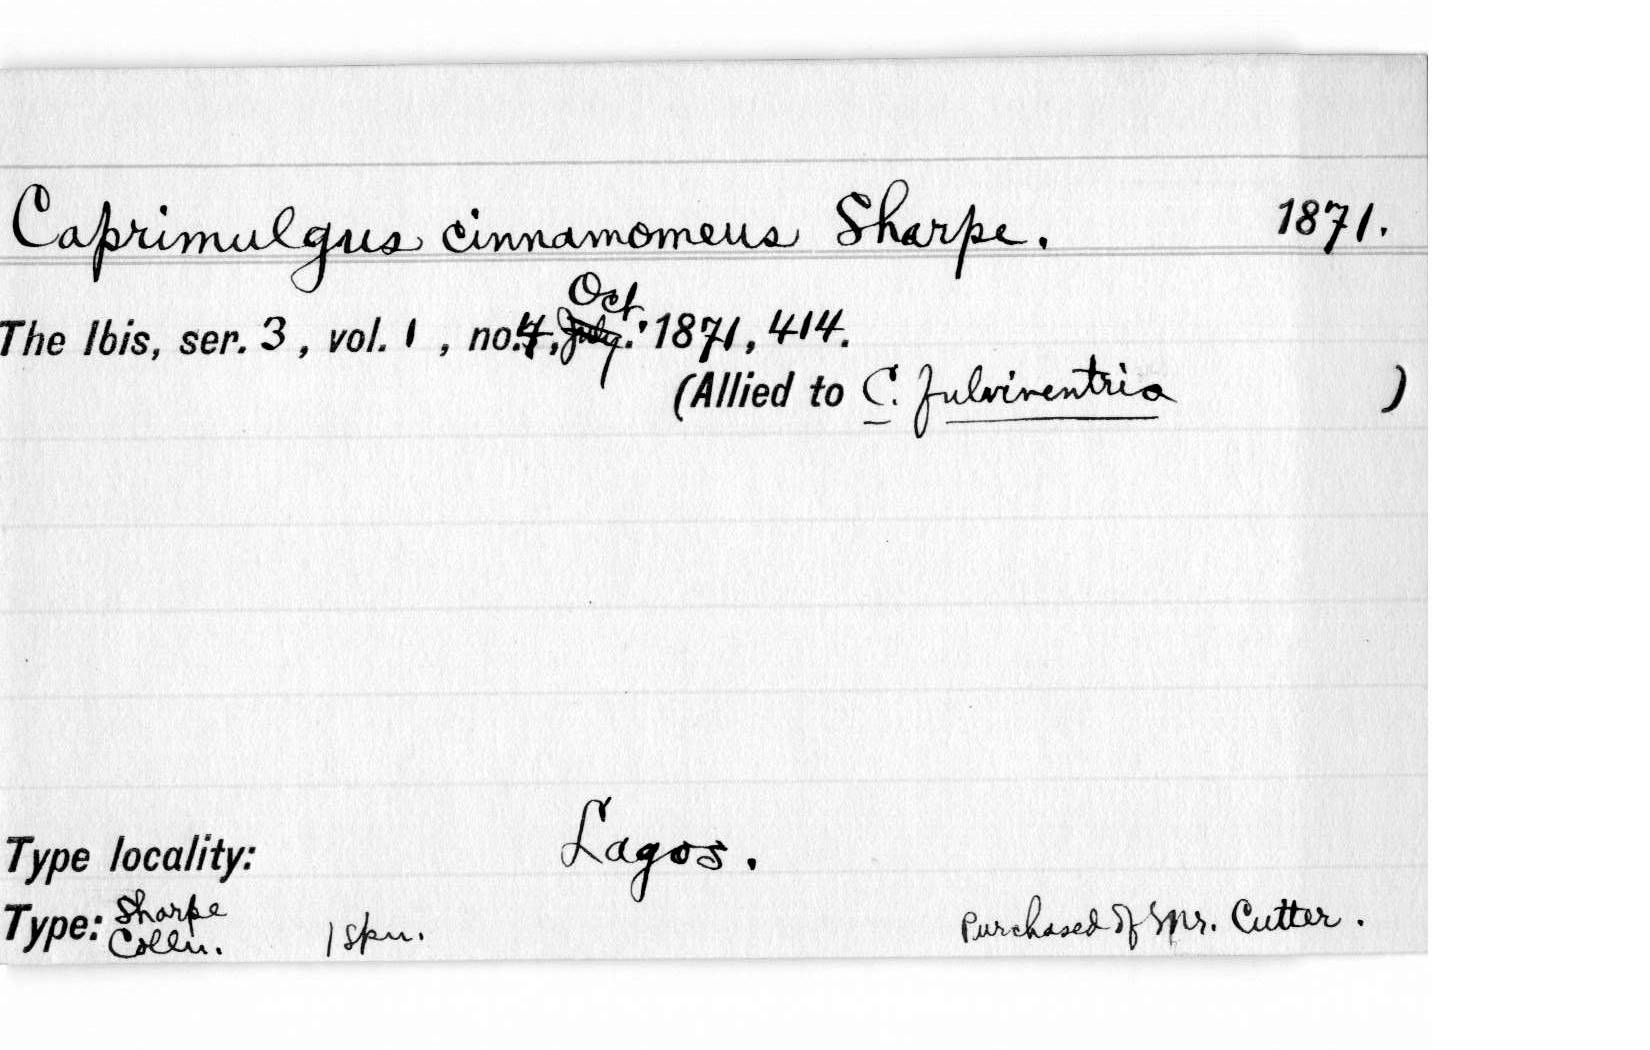 Caprimulgus cinnamomeus Sharpe. 1871.
The Ibis, ser. 3, vol. 1, no. 4, July Oct.: 1871, 414.
(Allied to C. fulviventris )
Type locality: Lagos.
Type: Sharpe Colln. 1 spn. Purchased of Mr. Cutter.